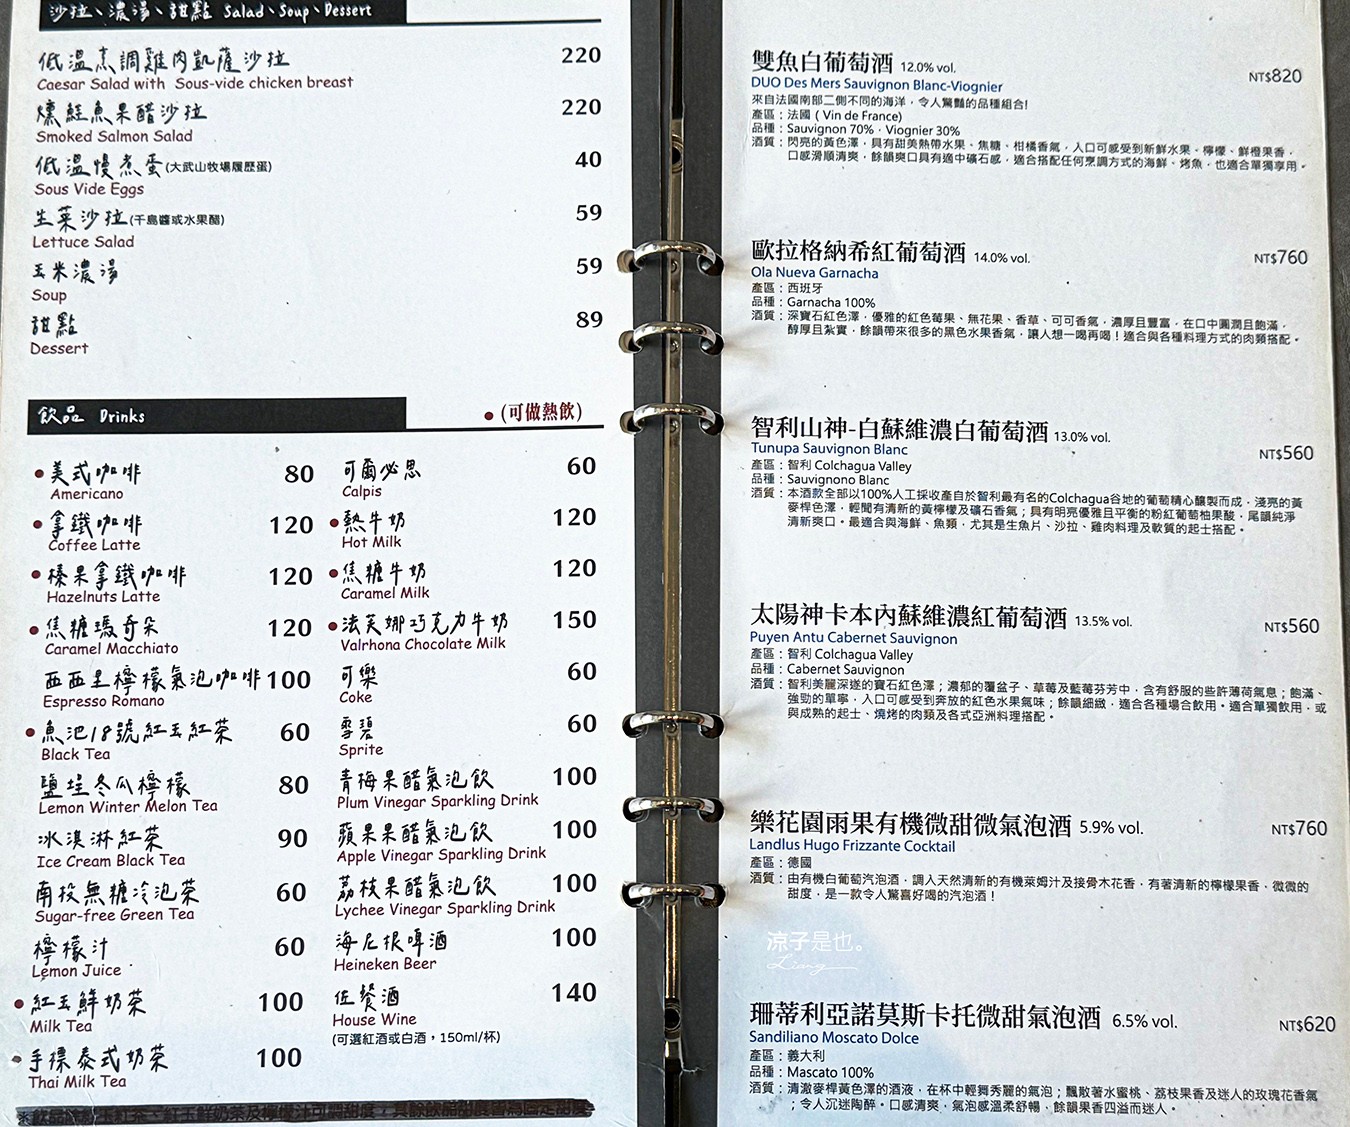 沙拉、濃湯、甜點 Salad、Soup、Dessert
低溫烹調雞肉凱薩沙拉 220
Caesar Salad with Sous-vide chicken breast
燻鮭魚果醋沙拉 220
Smoked Salmon Salad
低溫慢煮蛋(大武山牧場履歷蛋) 40
Sous Vide Eggs
生菜沙拉(千島醬或水果醋) 59
Lettuce Salad
玉米濃湯 59
Soup
甜點 89
Dessert
飲品 Drinks
•(可做熱飲)
•美式咖啡 80
Americano
•拿鐵咖啡 120
Coffee Latte
•榛果拿鐵咖啡 120
Hazelnuts Latte
•焦糖瑪奇朵 120
Caramel Macchiato
西西里檸檬氣泡咖啡 100
Espresso Romano
•魚池18號紅玉紅茶 60
Black Tea
鹽埕冬瓜檸檬 80
Lemon Winter Melon Tea
冰淇淋紅茶 90
Ice Cream Black Tea
南投無糖冷泡茶 60
Sugar-free Green Tea
檸檬汁 60
Lemon Juice
•紅玉鮮奶茶 100
Milk Tea
•手標泰式奶茶 100
Thai Milk Tea
可爾必思 60
Calpis
•熱牛奶 120
Hot Milk
•焦糖牛奶 120
Caramel Milk
•法芙娜巧克力牛奶 150
Valrhona Chocolate Milk
可樂 60
Coke
雪碧 60
Sprite
青梅果醋氣泡飲 100
Plum Vinegar Sparkling Drink
蘋果果醋氣泡飲 100
Apple Vinegar Sparkling Drink
荔枝果醋氣泡飲 100
Lychee Vinegar Sparkling Drink
海尼根啤酒 100
Heineken Beer
佐餐酒 140
House Wine
(可選紅酒或白酒，150ml/杯)
雙魚白葡萄酒 12.0% vol. NT$820
DUO Des Mers Sauvignon Blanc-Viognier
來自法國南部二側不同的海洋，令人驚豔的品種組合!
產區：法國 ( Vin de France)
品種：Sauvignon 70%．Viognier 30%
酒質：閃亮的黃色澤，具有甜美熱帶水果、焦糖、柑橘香氣，入口可感受到新鮮水果、檸檬、鮮橙果香，
口感滑順清爽，餘韻爽口具有適中礦石感，適合搭配任何烹調方式的海鮮、烤魚，也適合單獨享用。
歐拉格納希紅葡萄酒 14.0% vol. NT$760
Ola Nueva Garnacha
產區：西班牙
品種：Garnacha 100%
酒質：深寶石紅色澤，優雅的紅色莓果、無花果、香草、可可香氣，濃厚且豐富，在口中圓潤且飽滿，
醇厚且紮實，餘韻帶來很多的黑色水果香氣，讓人想一喝再喝！適合與各種料理方式的肉類搭配。
智利山神-白蘇維濃白葡萄酒 13.0% vol. NT$560
Tunupa Sauvignon Blanc
產區：智利 Colchagua Valley
品種：Sauvignono Blanc
酒質：本酒款全部以100%人工採收產自於智利最有名的Colchagua谷地的葡萄精心釀製而成，淺亮的黃
麥桿色澤，輕聞有清新的黃檸檬及礦石香氣；具有明亮優雅且平衡的粉紅葡萄柚果酸，尾韻純淨
清新爽口。最適合與海鮮、魚類，尤其是生魚片、沙拉、雞肉料理及軟質的起士搭配。
太陽神卡本內蘇維濃紅葡萄酒 13.5% vol. NT$560
Puyen Antu Cabernet Sauvignon
產區：智利 Colchagua Valley
品種：Cabernet Sauvignon
酒質：智利美麗深遂的寶石紅色澤；濃郁的覆盆子、草莓及藍莓芬芳中，含有舒服的些許薄荷氣息；飽滿、
強勁的單寧，入口可感受到奔放的紅色水果氣味；餘韻細緻，適合各種場合飲用。適合單獨飲用，或
與成熟的起士、燒烤的肉類及各式亞洲料理搭配。
樂花園雨果有機微甜微氣泡酒 5.9% vol. NT$760
Landlus Hugo Frizzante Cocktail
產區：德國
酒質：由有機白葡萄汽泡酒，調入天然清新的有機萊姆汁及接骨木花香，有著清新的檸檬果香，微微的
甜度，是一款令人驚喜好喝的汽泡酒！
涼子是也。
Liang
珊蒂利亞諾莫斯卡托微甜氣泡酒 6.5% vol. NT$620
Sandiliano Moscato Dolce
產區：義大利
品種：Mascato 100%
酒質：清澈麥桿黃色澤的酒液，在杯中輕舞秀麗的氣泡；飄散著水蜜桃、荔枝果香及迷人的玫瑰花香氣
；令人沉迷陶醉。口感清爽，氣泡感溫柔舒暢，餘韻果香四溢而迷人。